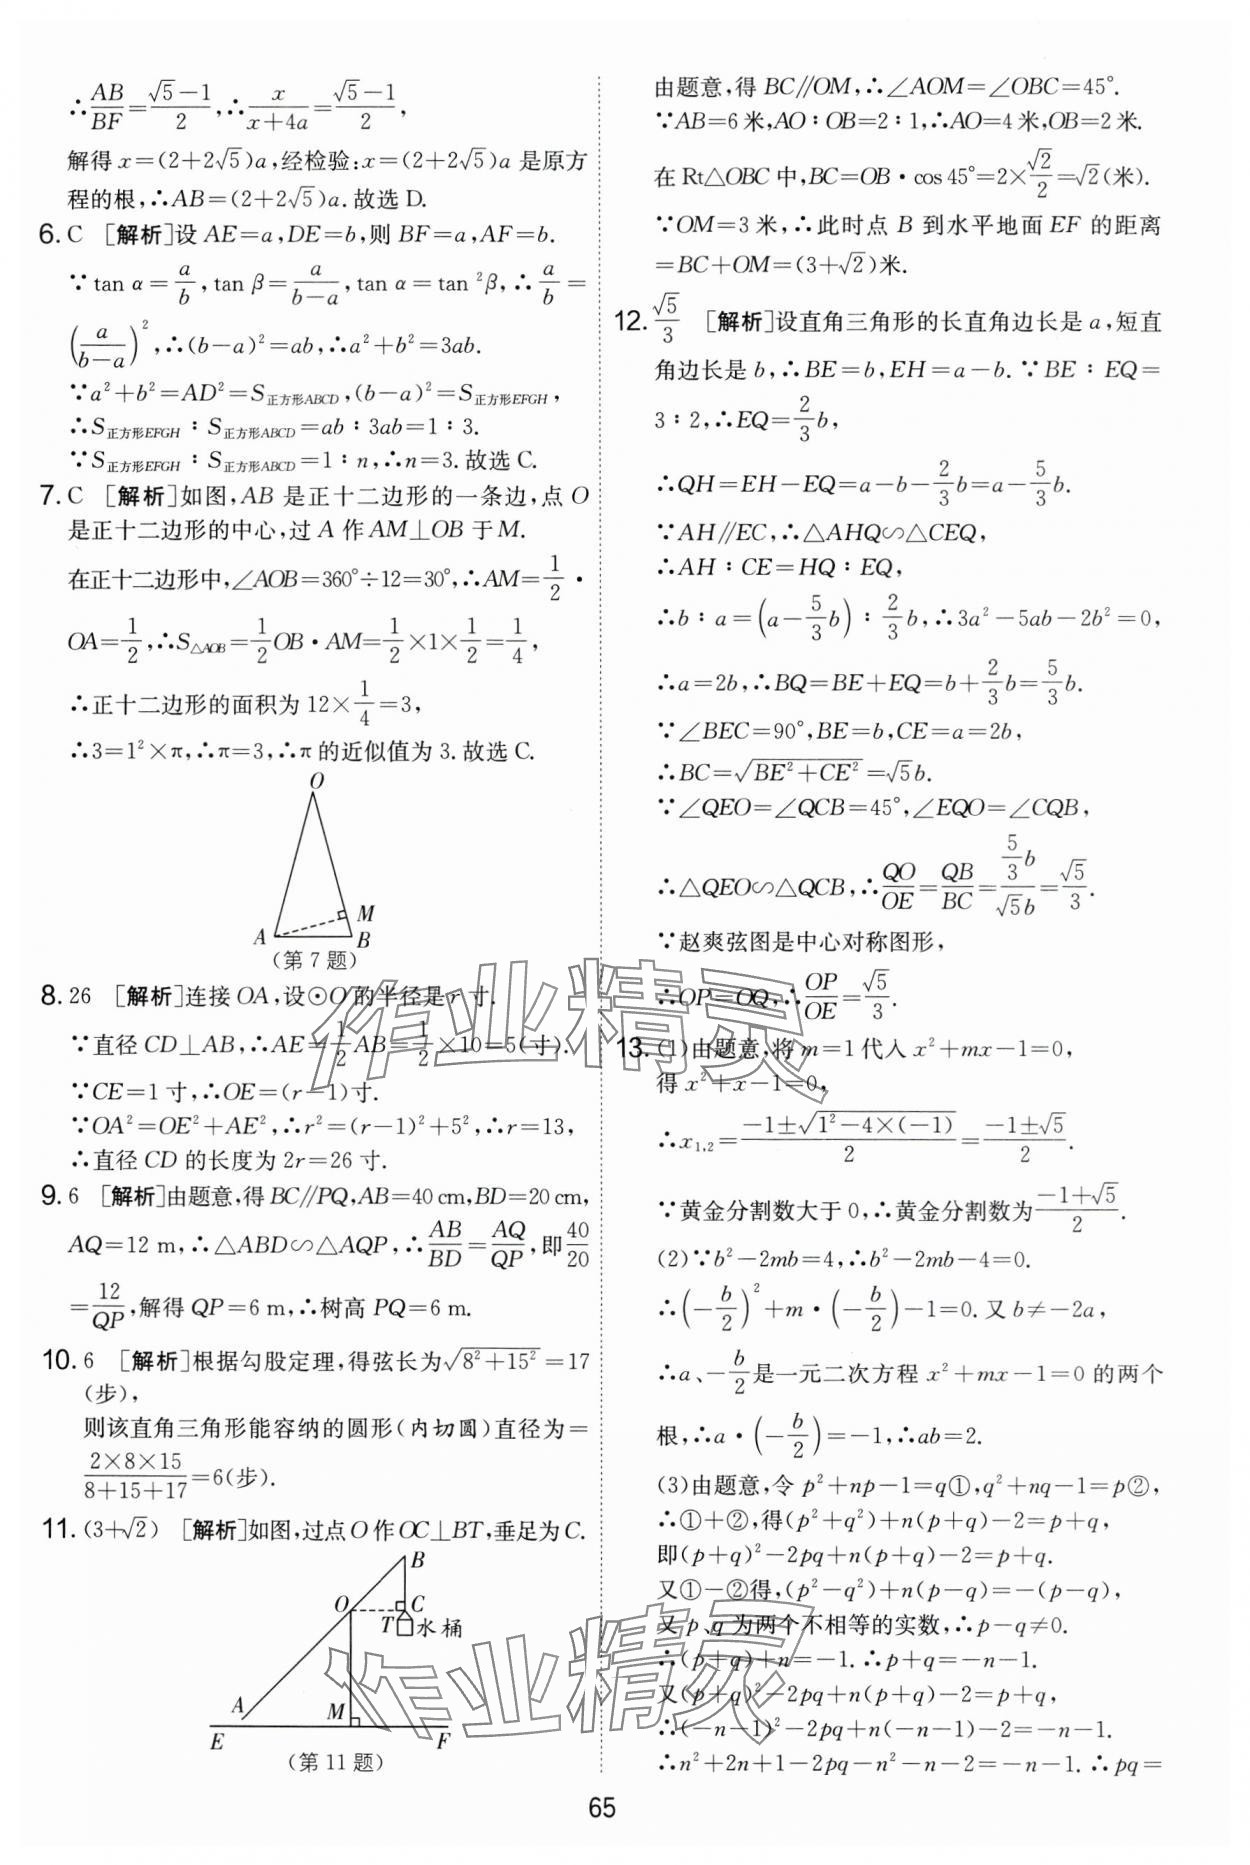 ∴AB/BF=(√5-1)/2,∴x/(x+4a)=(√5-1)/2,
解得 x=(2+2√5)a,经检验:x=(2+2√5)a 是原方
程的根,∴AB=(2+2√5)a.故选 D.
6. C [解析]设 AE=a,DE=b,则 BF=a,AF=b.
∵tan α=a/b,tan β=a/(b-a),tan α=tan²β,∴a/b=
(a/(b-a))²,∴(b-a)²=ab,∴a²+b²=3ab.
∵a²+b²=AD²=S正方形ABCD,(b-a)²=S正方形EFGH,
∴S正方形EFGH∶S正方形ABCD=ab∶3ab=1∶3.
∵S正方形EFGH∶S正方形ABCD=1∶n,∴n=3.故选 C.
7. C [解析]如图,AB 是正十二边形的一条边,点 O
是正十二边形的中心,过 A 作 AM⊥OB 于 M.
在正十二边形中,∠AOB=360°÷12=30°,∴AM=1/2·
OA=1/2,∴S△AOB=1/2OB·AM=1/2×1×1/2=1/4,
∴正十二边形的面积为 12×1/4=3,
∴3=1²×π,∴π=3,∴π的近似值为 3.故选 C.
O
M
A
B
(第 7 题)
8. 26 [解析]连接 OA,设⊙O 的半径是 r 寸.
∵直径 CD⊥AB,∴AE=1/2AB=1/2×10=5(寸).
∵CE=1 寸,∴OE=(r-1)寸.
∵OA²=OE²+AE²,∴r²=(r-1)²+5²,∴r=13,
∴直径 CD 的长度为 2r=26 寸.
9. 6 [解析]由题意,得 BC∥PQ,AB=40 cm,BD=20 cm,
AQ=12 m,∴△ABD∽△AQP,∴AB/BD=AQ/QP,即40/20
=12/QP,解得 QP=6 m,∴树高 PQ=6 m.
10. 6 [解析]根据勾股定理,得弦长为√(8²+15²)=17
(步),
则该直角三角形能容纳的圆形(内切圆)直径为=
(2×8×15)/(8+15+17)=6(步).
11. (3+√2) [解析]如图,过点 O 作 OC⊥BT,垂足为 C.
B
O
C
T
水桶
A
M
E
F
(第 11 题)
由题意,得 BC∥OM,∴∠AOM=∠OBC=45°.
∵AB=6 米,AO∶OB=2∶1,∴AO=4 米,OB=2 米.
在 Rt△OBC 中,BC=OB·cos 45°=2×√2/2=√2(米).
∵OM=3 米,∴此时点 B 到水平地面 EF 的距离
=BC+OM=(3+√2)米.
12. √5/3 [解析]设直角三角形的长直角边长是 a,短直
角边长是 b,∴BE=b,EH=a-b.∵BE∶EQ=
3∶2,∴EQ=2/3b,
∴QH=EH-EQ=a-b-2/3b=a-5/3b.
∵AH∥EC,∴△AHQ∽△CEQ,
∴AH∶CE=HQ∶EQ,
∴b∶a=(a-5/3b)∶2/3b,∴3a²-5ab-2b²=0,
∴a=2b,∴BQ=BE+EQ=b+2/3b=5/3b.
∵∠BEC=90°,BE=b,CE=a=2b,
∴BC=√(BE²+CE²)=√5b.
∵∠QEO=∠QCB=45°,∠EQO=∠CQB,
∴△QEO∽△QCB,∴QO/OE=QB/BC=(5/3b)/(√5b)=√5/3.
∵赵爽弦图是中心对称图形,
∴OP=OQ,∴OP/OE=√5/3.
13. (1)由题意,将 m=1 代入 x²+mx-1=0,
得 x²+x-1=0,
∴x₁,₂=(-1±√(1²-4×(-1)))/2=(-1±√5)/2.
∵黄金分割数大于 0,∴黄金分割数为(-1+√5)/2.
(2)∵b²-2mb=4,∴b²-2mb-4=0.
∴(-b/2)²+m·(-b/2)-1=0.又 b≠-2a,
∴a、-b/2是一元二次方程 x²+mx-1=0 的两个
根,∴a·(-b/2)=-1,∴ab=2.
(3)由题意,令 p²+np-1=q①,q²+nq-1=p②,
∴①+②,得(p²+q²)+n(p+q)-2=p+q,
即(p+q)²-2pq+n(p+q)-2=p+q.
又①-②得,(p²-q²)+n(p-q)=-(p-q),
又 p、q 为两个不相等的实数,∴p-q≠0.
∴(p+q)+n=-1.∴p+q=-n-1.
又(p+q)²-2pq+n(p+q)-2=p+q,
∴(-n-1)²-2pq+n(-n-1)-2=-n-1.
∴n²+2n+1-2pq-n²-n-2=-n-1.∴pq=
65
作业精灵
作业精灵